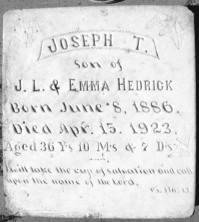 JOSEPH T.
son of
J. L. & EMMA HEDRICK
Born June 8, 1886.
Died Apr. 15. 1923.
Aged 36 Ys 10 Ms & 7 Ds
I will take the cup of salvation and call
upon the name of the Lord.
Ps. 116. 13.